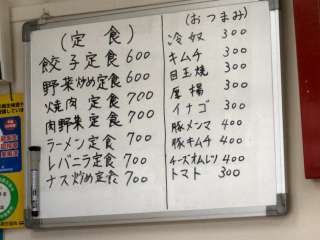 (定食)
餃子定食 600
野菜炒め定食 600
焼肉定食 700
肉野菜定食 700
ラーメン定食 700
レバニラ定食 700
ナス炒め定食 700
(おつまみ)
冷奴 300
キムチ 300
目玉焼 300
厚揚 300
イナゴ 300
豚メンマ 400
豚キムチ 400
チーズオムレツ 400
トマト 300